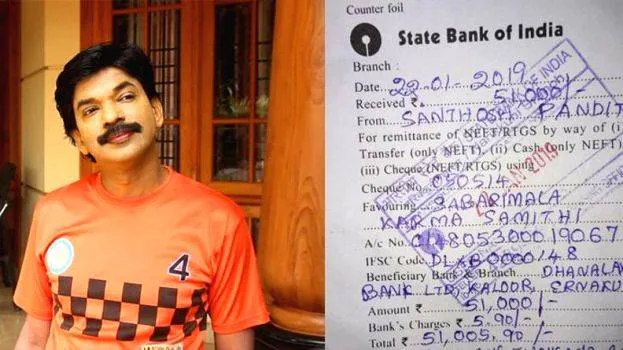 4
Counter foil
State Bank of India
Branch :
Date 22-01-2019
Received ₹. 51,000/-
From SANTHOSH PANDIT
For remittance of NEFT/RTGS by way of (i)
Transfer (only NEFT) (ii) Cash (only NEFT)
(iii) Cheque (NEFT/RTGS) using
Cheque No. 050514
Favouring SABARIMALA
KARMA SAMITHI
A/c No.
IFSC Code
Beneficiary Bank & Branch DHANALA
BANK LTD KALOOR, ERNAKU
Amount ₹ 51,000/-
Bank's Charges ₹ 5.90/-
Total ₹ 51,005.90/-